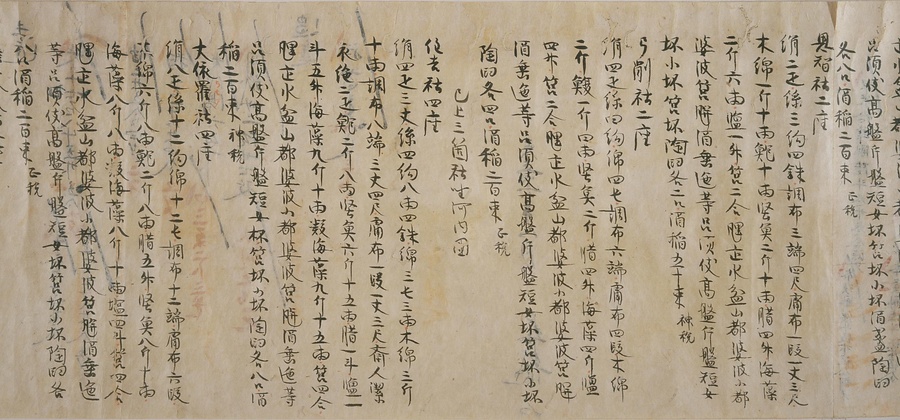 品須伎高盤斤盤短女坏筥坏小坏酒盞陶臼
各八口酒稲二百束 正税
恩智社二座
絹二疋絲三約四銖調布三端四尺庸布一段一丈三尺
木綿一斤十両鰒十両堅魚二斤十両腊四升海藻
二斤六両塩一升筥二合𤭖缶水盆山都婆波小都
婆波筥瓶酒垂匜等呂須伎高盤斤盤短女
坏小坏筥坏陶臼各二口酒稲五十束 神税
弓削社二座
絹四疋絲四約綿四屯調布六端庸布四段木綿
二斤鰒一斤四両堅魚二斤腊四升海藻四斤塩
四升筥二合𤭖缶水盆山都婆波小都婆波筥瓶
酒垂匜等呂須伎高盤斤盤短女坏筥坏小坏
陶臼各四口酒稲二百束 正税
已上三箇社坐河内国
住吉社四座
絹四疋三丈絲四約八両四銖綿三屯三両木綿三斤
十両調布八端三丈四尺庸布一段一丈三尺斎人潔
衣絁二疋鰒二斤八両堅魚六斤十五両腊一斗塩一
斗五升海藻九斤十両雑海藻九斤十五両筥四合
𤭖缶水盆山都婆波小都婆波筥瓶酒垂匜等
呂須伎高盤斤盤短女坏筥坏小坏陶臼各八口酒
稲二百束 神税
大依羅社四座
絹八疋絲十二約綿十二屯調布十二端庸布六段
綿六斤八両鰒二斤八両腊五升堅魚八斤十両
海藻八斤八両滑海藻八斤十両塩四斗筥四合
𤭖缶水盆山都婆波小都婆波筥瓶酒垂匜
等呂須伎高盤斤盤短女坏筥坏小坏陶臼各
八口酒稲二百束 正税